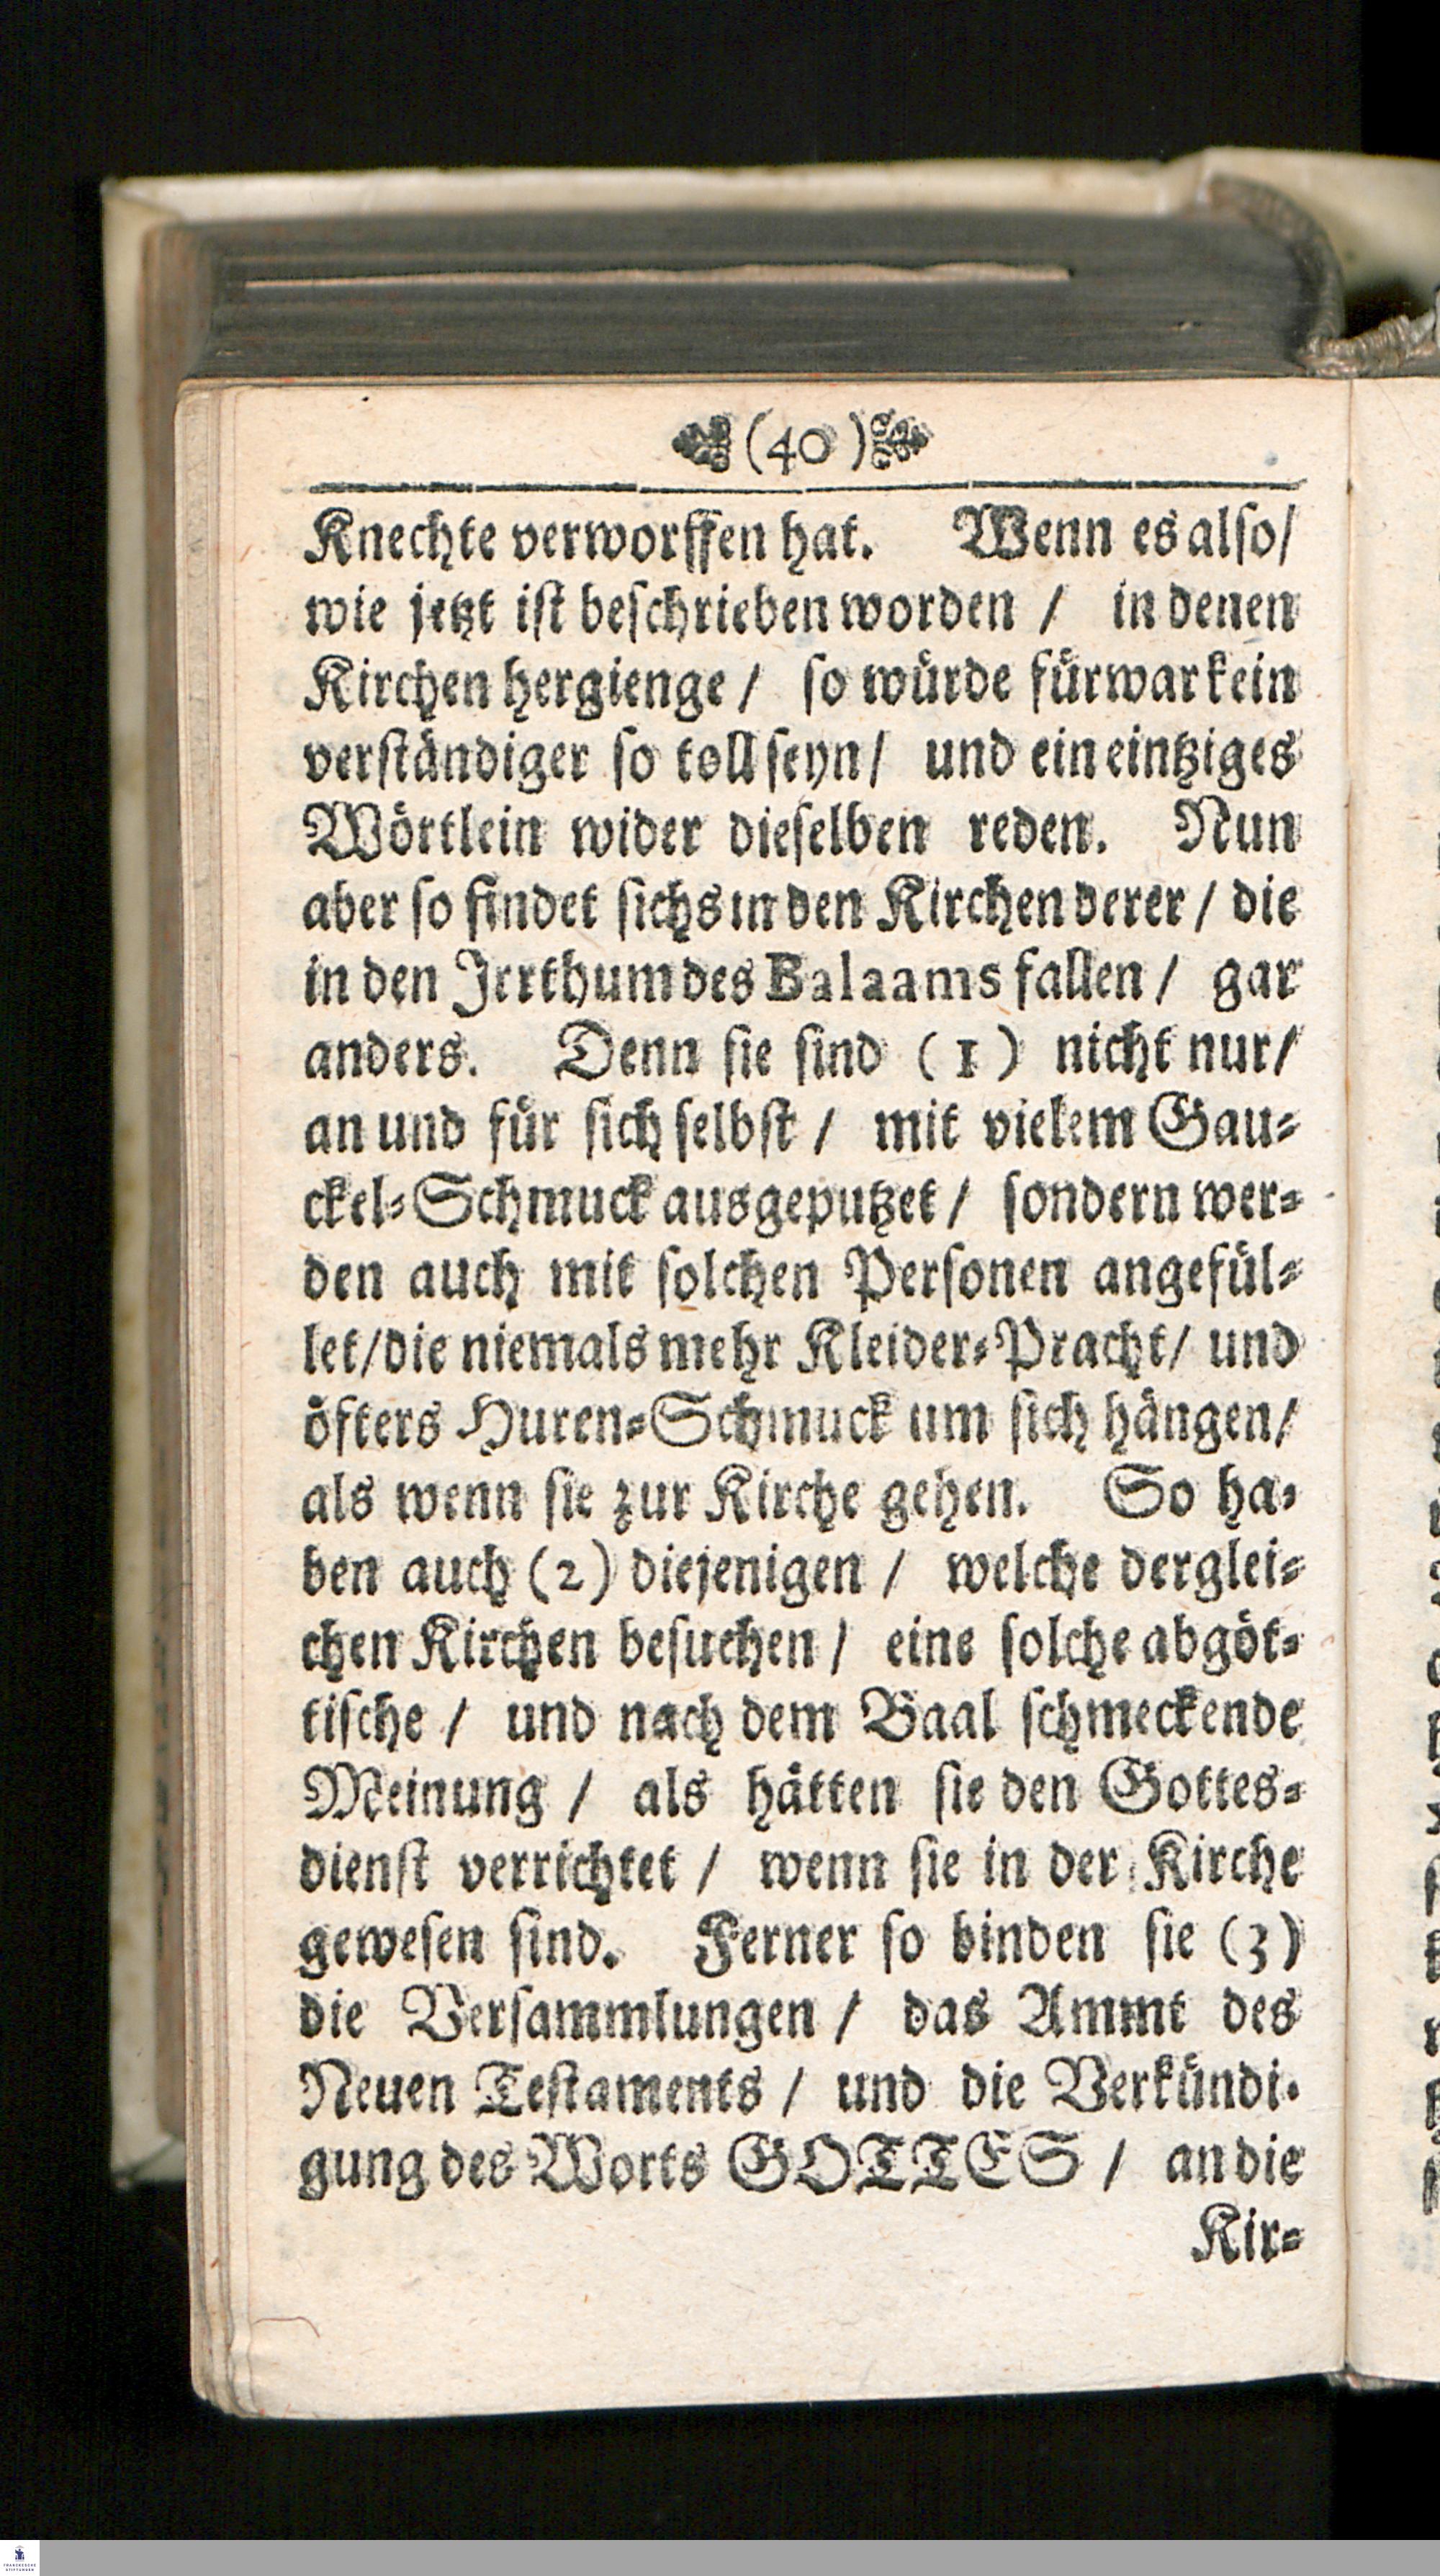 (40)
Knechte verworffen hat. Wenn es also/
wie jetzt ist beschrieben worden / in denen
Kirchen hergienge / so würde fürwar kein
verständiger so toll seyn / und ein eintziges
Wörtlein wider dieselben reden. Nun
aber so findet sichs in den Kirchen derer / die
in den Irrthum des Balaams fallen / gar
anders. Denn sie sind (1) nicht nur/
an und für sich selbst / mit vielem Gau-
ckel-Schmuck ausgeputzet / sondern wer-
den auch mit solchen Personen angefül-
let/die niemals mehr Kleider-Pracht/ und
öfters Huren-Schmuck um sich hängen/
als wenn sie zur Kirche gehen. So ha-
ben auch (2) diejenigen / welche derglei-
chen Kirchen besuchen / eine solche abgöt-
tische / und nach dem Baal schmeckende
Meinung / als hätten sie den Gottes-
dienst verrichtet / wenn sie in der Kirche
gewesen sind. Ferner so binden sie (3)
die Versammlungen / das Ammt des
Neuen Testaments / und die Verkündi-
gung des Worts GOTTES / an die
Kir-
FRANCKESCHE
STIFTUNGEN